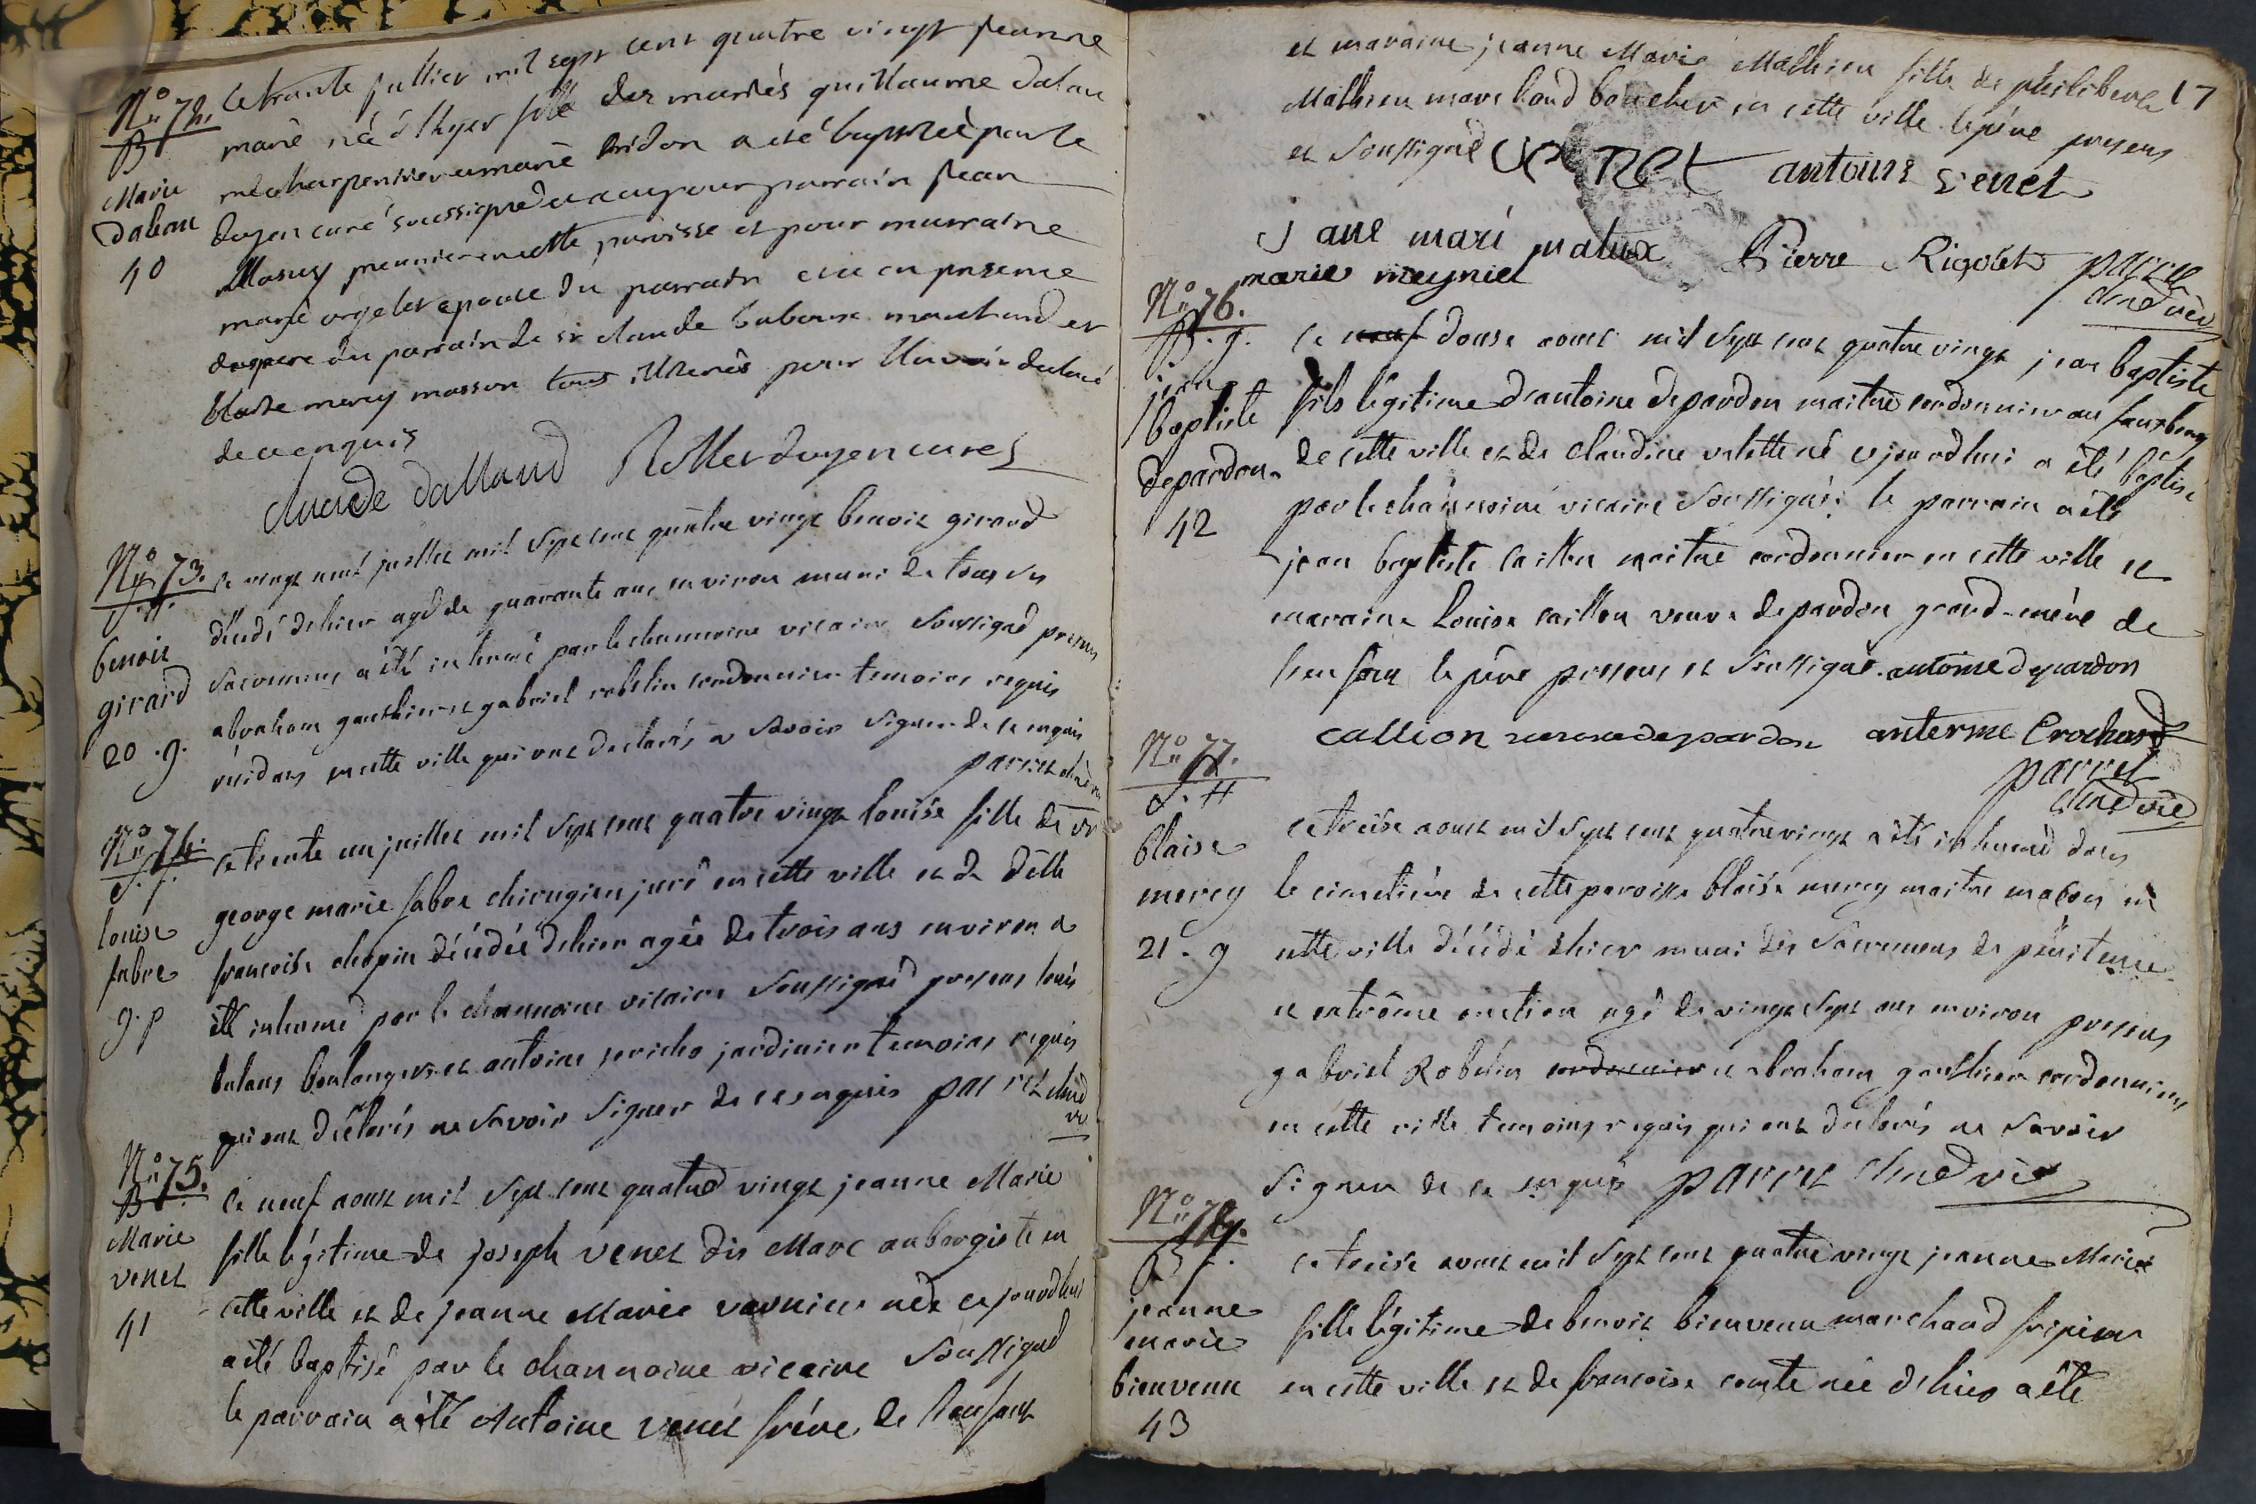 N.º 72.
B f.
Marie
Daland
40
Le trante juillier mil sept cent quatre vingt Jeanne
marie née d'hyer fille des mariés guillaume
me charpentier et marie a eté baptisée par le
doyen curé soussigné et a eu pour parrain Jean
meunier en cette paroisse et pour marraine
marie epouse du parrain et ce en presence
du pere du parrain de sr claude marchand et
blaise mercy masson illiterés pour l'avoir declaré
de ce enquis
claude dalland doyen curé
N.º 73.
S. H.
benoit
girard
20 . g.
le vingt neuf juillet mil sept cent quatre vingt benoit girard
décédé dehier agé de quarante ans environ muni de tous les
sacremens a été inhumé par le channoine vicaire soussigné presens
abraham gauthier et gabriel robelin cordonnier temoins requis
résidans en cette ville qui ont declarés ne savoir signer de ce enquis
parret chne vic
N.º 74.
S. f.
louise
fabre
g. p
le trente un juillet mil sept cent quatre vingt louise fille de sr
george marie fabre chirugien juré en cette ville et de delle
francoise chapin décédée dehier agée de trois ans environ a
été inhumé par le channoine vicaire soussigné presens louis
boulanger et antoine jericho jardinier temoins requis
qui ont déclarés ne savoir signer de ce enquis parret chne
vic
N.º 75.
B f.
Marie
venet
41
le neuf aout mil sept cent quatre vingt jeanne Marie
fille légitime de joseph venet dit Marc aubergiste en
cette ville et de jeanne Marie varnier née ce jourdhui
a été baptisé par le channoine vicaire soussigné
le parrain a été Antoine venet frére de l'enfant
17
et maraine jeanne Marie Mathieu fille de philibert
Mathieu marchand boucher en cette ville le pére presens
et soussigné venet antoine venet
jane mari matieux Pierre Rigolet parret
marie meyniel chne vic
N.º 76.
B. g.
jean
baptiste
depardon
42
le neuf douse aout mil sept cent quatre vingt jean baptiste
fils légitime d'antoine depardon maitre cordonnier au fauxbourg
de cette ville et de claudine valette né ce jourdhui a été baptisé
par le channoine vicaire soussigné: le parrain a été
jean baptiste caillon maitre cordonnier en cette ville et
maraine Louise caillon veuve depardon grand-mére de
l'enfant le pére presens et soussigné. antoine depardon
callion depardon anterme Crochard
parret
chne vic
N.º 77.
S. H
blaise
mercy
21 . g
le treise aout mil sept cent quatre vingt a été inhumé dans
le cimetière de cette paroisse blaise mercy maitre maçon en
cette ville décédé dhier muni des sacremens de pénitence
et extrême onction agé de vingt sept ans environ presens
gabriel Robelin cordonnier et abraham gauthier cordonniers
en cette ville temoins requis qui ont declarés ne savoir
signer de ce enquis parret chne vic
N.º 78.
B f.
jeanne
marie
bienvenu
43
le treise aout mil sept cent quatre vingt jeanne Marie
fille légitime de benoit bienvenu marchand fripier
en cette ville et de francoise comte née dhier a été